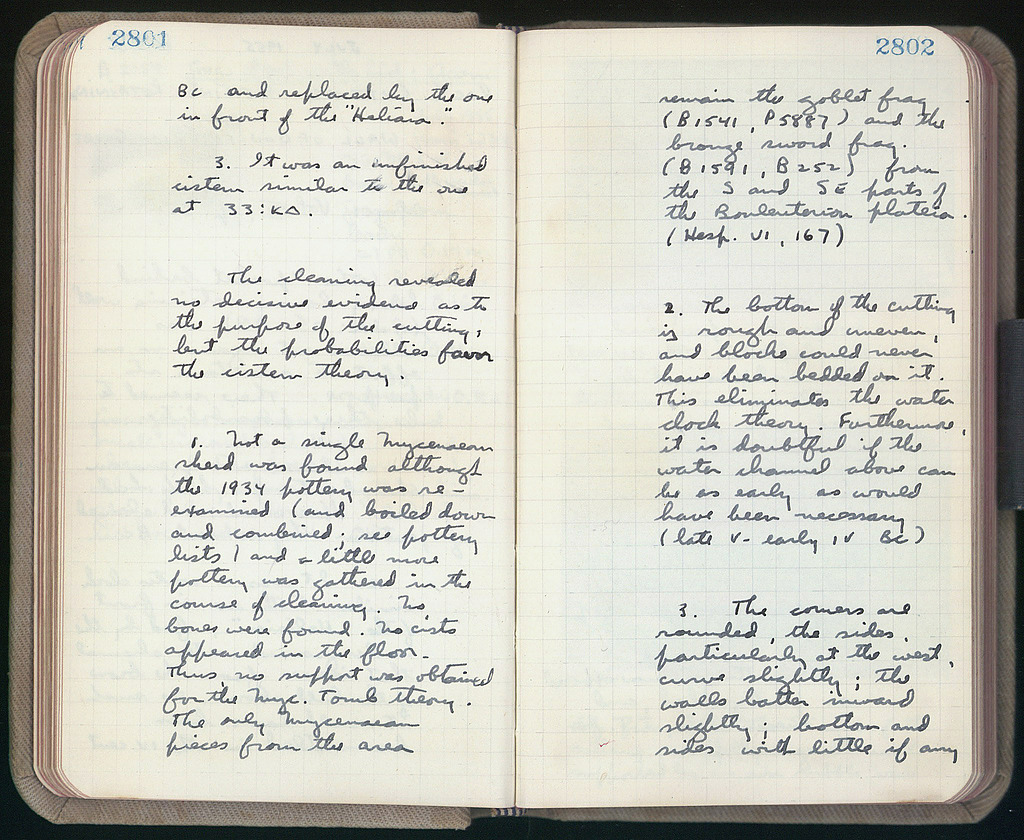 2801
BC and replaced by the one
in front of the "Heliaia."
3. It was an unfinished
cistern similar to the one
at 33:ΚΔ.
The cleaning revealed
no decisive evidence as to
the purpose of the cutting,
but the probabilities favor
the cistern theory.
1. Not a single Mycenaean
sherd was found although
the 1934 pottery was re-
examined (and boiled down
and combined; see pottery
lists) and a little more
pottery was gathered in the
course of cleaning. No
bones were found. No cists
appeared in the floor.
Thus, no support was obtained
for the Myc. Tomb theory.
The only Mycenaean
pieces from the area
2802
remain the goblet frag
(B1541, P5887) and the
bronze sword frag.
(B1591, B252) from
the S and SE parts of
the Bouleuterion plateia.
(Hesp. VI, 167)
2. The bottom of the cutting
is rough and uneven,
and blocks could never
have been bedded on it.
This eliminates the water
clock theory. Furthermore,
it is doubtful if the
water channel above can
be as early as would
have been necessary
(late V - early IV BC)
3. The corners are
rounded, the sides,
particularly at the west,
curve slightly; the
walls batter inward
slightly; bottom and
sides with little if any